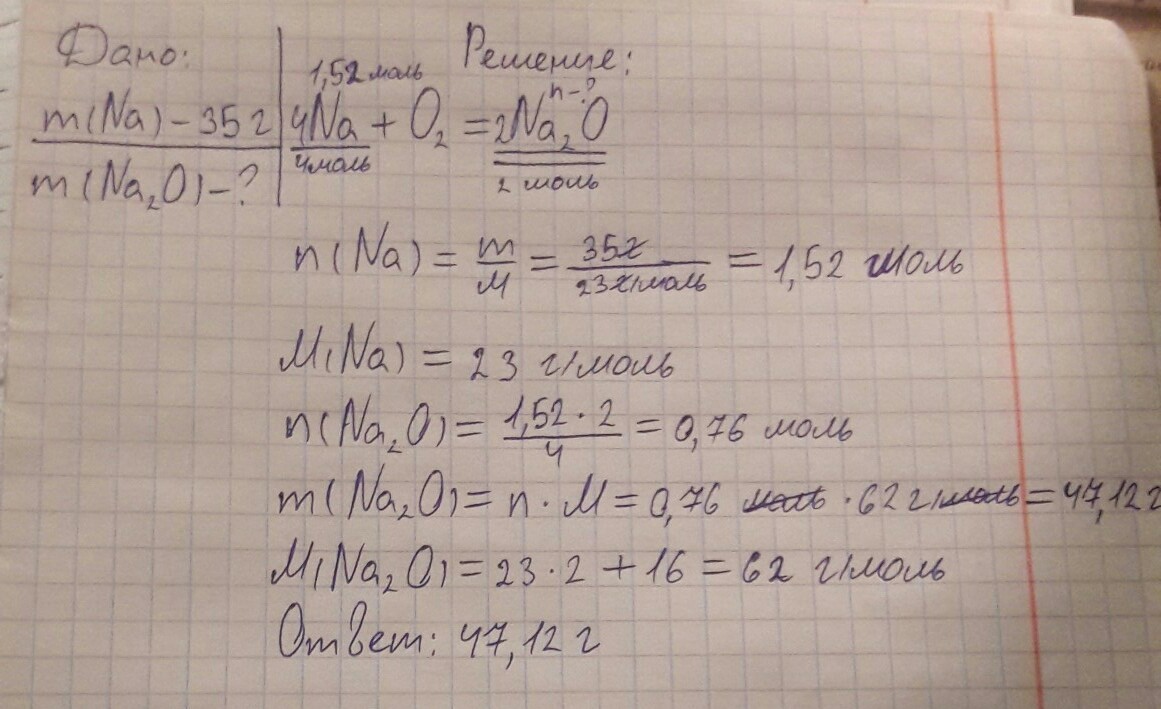 Дано:
Решение:
1,52 моль
n-?
m(Na) - 35 г
4Na + O₂ = 2Na₂O
4 моль
2 моль
m(Na₂O) - ?
n(Na) = m/M = 35г/23г/моль = 1,52 моль
M(Na) = 23 г/моль
n(Na₂O) = 1,52 · 2/4 = 0,76 моль
m(Na₂O) = n · M = 0,76 моль · 62 г/моль = 47,12 г
M(Na₂O) = 23 · 2 + 16 = 62 г/моль
Ответ: 47,12 г